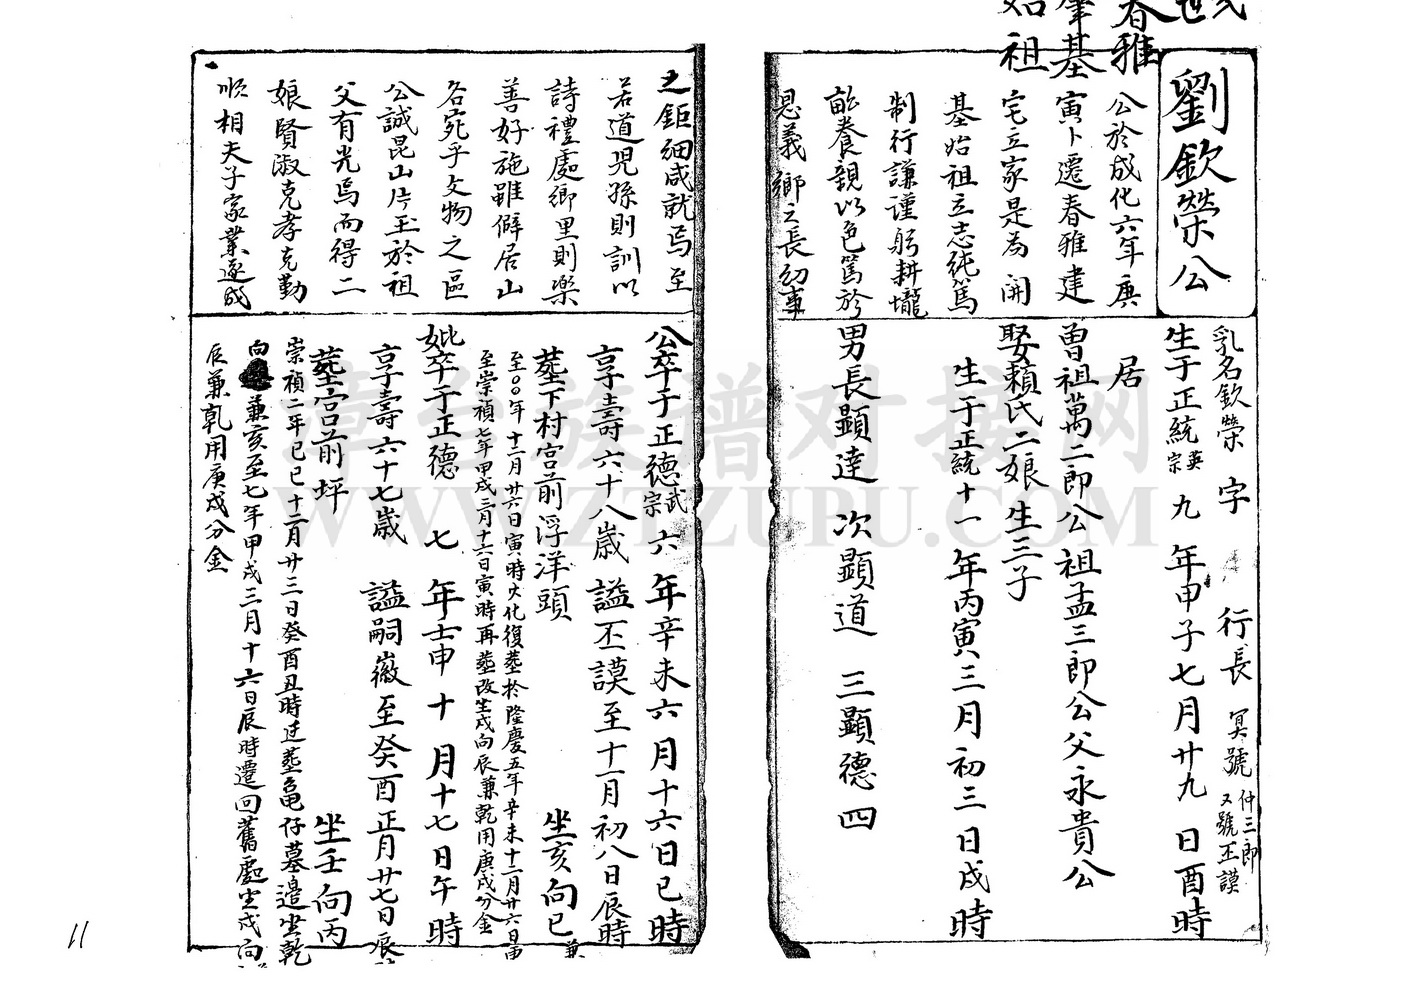 春雅
肇基
始祖
劉欽榮公
公於成化六年庚
寅卜遷春雅建
宅立家是為開
基始祖立志純篤
制行謙謹躬耕壠
畝養親以色篤於
恩義鄉之長幼事
乳名欽榮 字 行長 冥號 仲三郎 又號丕謨
生于正統英宗九年甲子七月廿九日酉時
居
曾祖萬二郎公祖孟三郎公父永貴公
娶賴氏二娘生三子
生于正統十一年丙寅三月初三日戌時
男長顯達 次顯道 三顯德 四
之鉅細咸就焉至
若道兒孫則訓以
詩禮處鄉里則樂
善好施雖僻居山
谷宛乎文物之區
公誠昆山片玉於祖
父有光焉而得二
娘賢淑克孝克勤
順相夫子家業遂成
公卒于正德武宗六年辛未六月十六日巳時
享壽六十八歲 謚丕謨至十一月初八日辰時
塟下村宮前浮洋頭 坐亥向巳兼
至〇〇年十二月廿六日寅時火化復塟於隆慶五年辛未十二月廿六日申
至崇禎七年甲戌三月十六日寅時再塟改坐戌向辰兼乾用庚戌分金
妣卒于正德 七 年壬申 十 月十七日午時
享壽六十七歲 謚嗣徽至癸酉正月廿七日辰
塟宮前坪 坐壬向丙
崇禎二年己巳十二月廿三日癸酉丑時迁塟黽仔墓邊坐乾
向 兼亥至七年甲戌三月十六日辰時遷回舊處坐戌向
辰兼乾用庚戌分金
漳台族譜对接网
WWW.ZTZUPU.COM
11